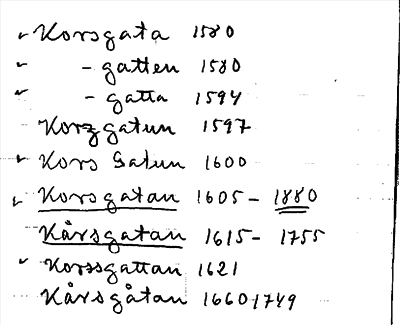 ✓ Korsgata 1580
✓ - gatten 1580
✓ - gatta 1594
Korzgatun 1597
✓ Kors Gatun 1600
✓ Korsgatan 1605 - 1880
Kårsgatan 1615 - 1755
✓ Korssgattan 1621
Kårsgåtan 1660 1749